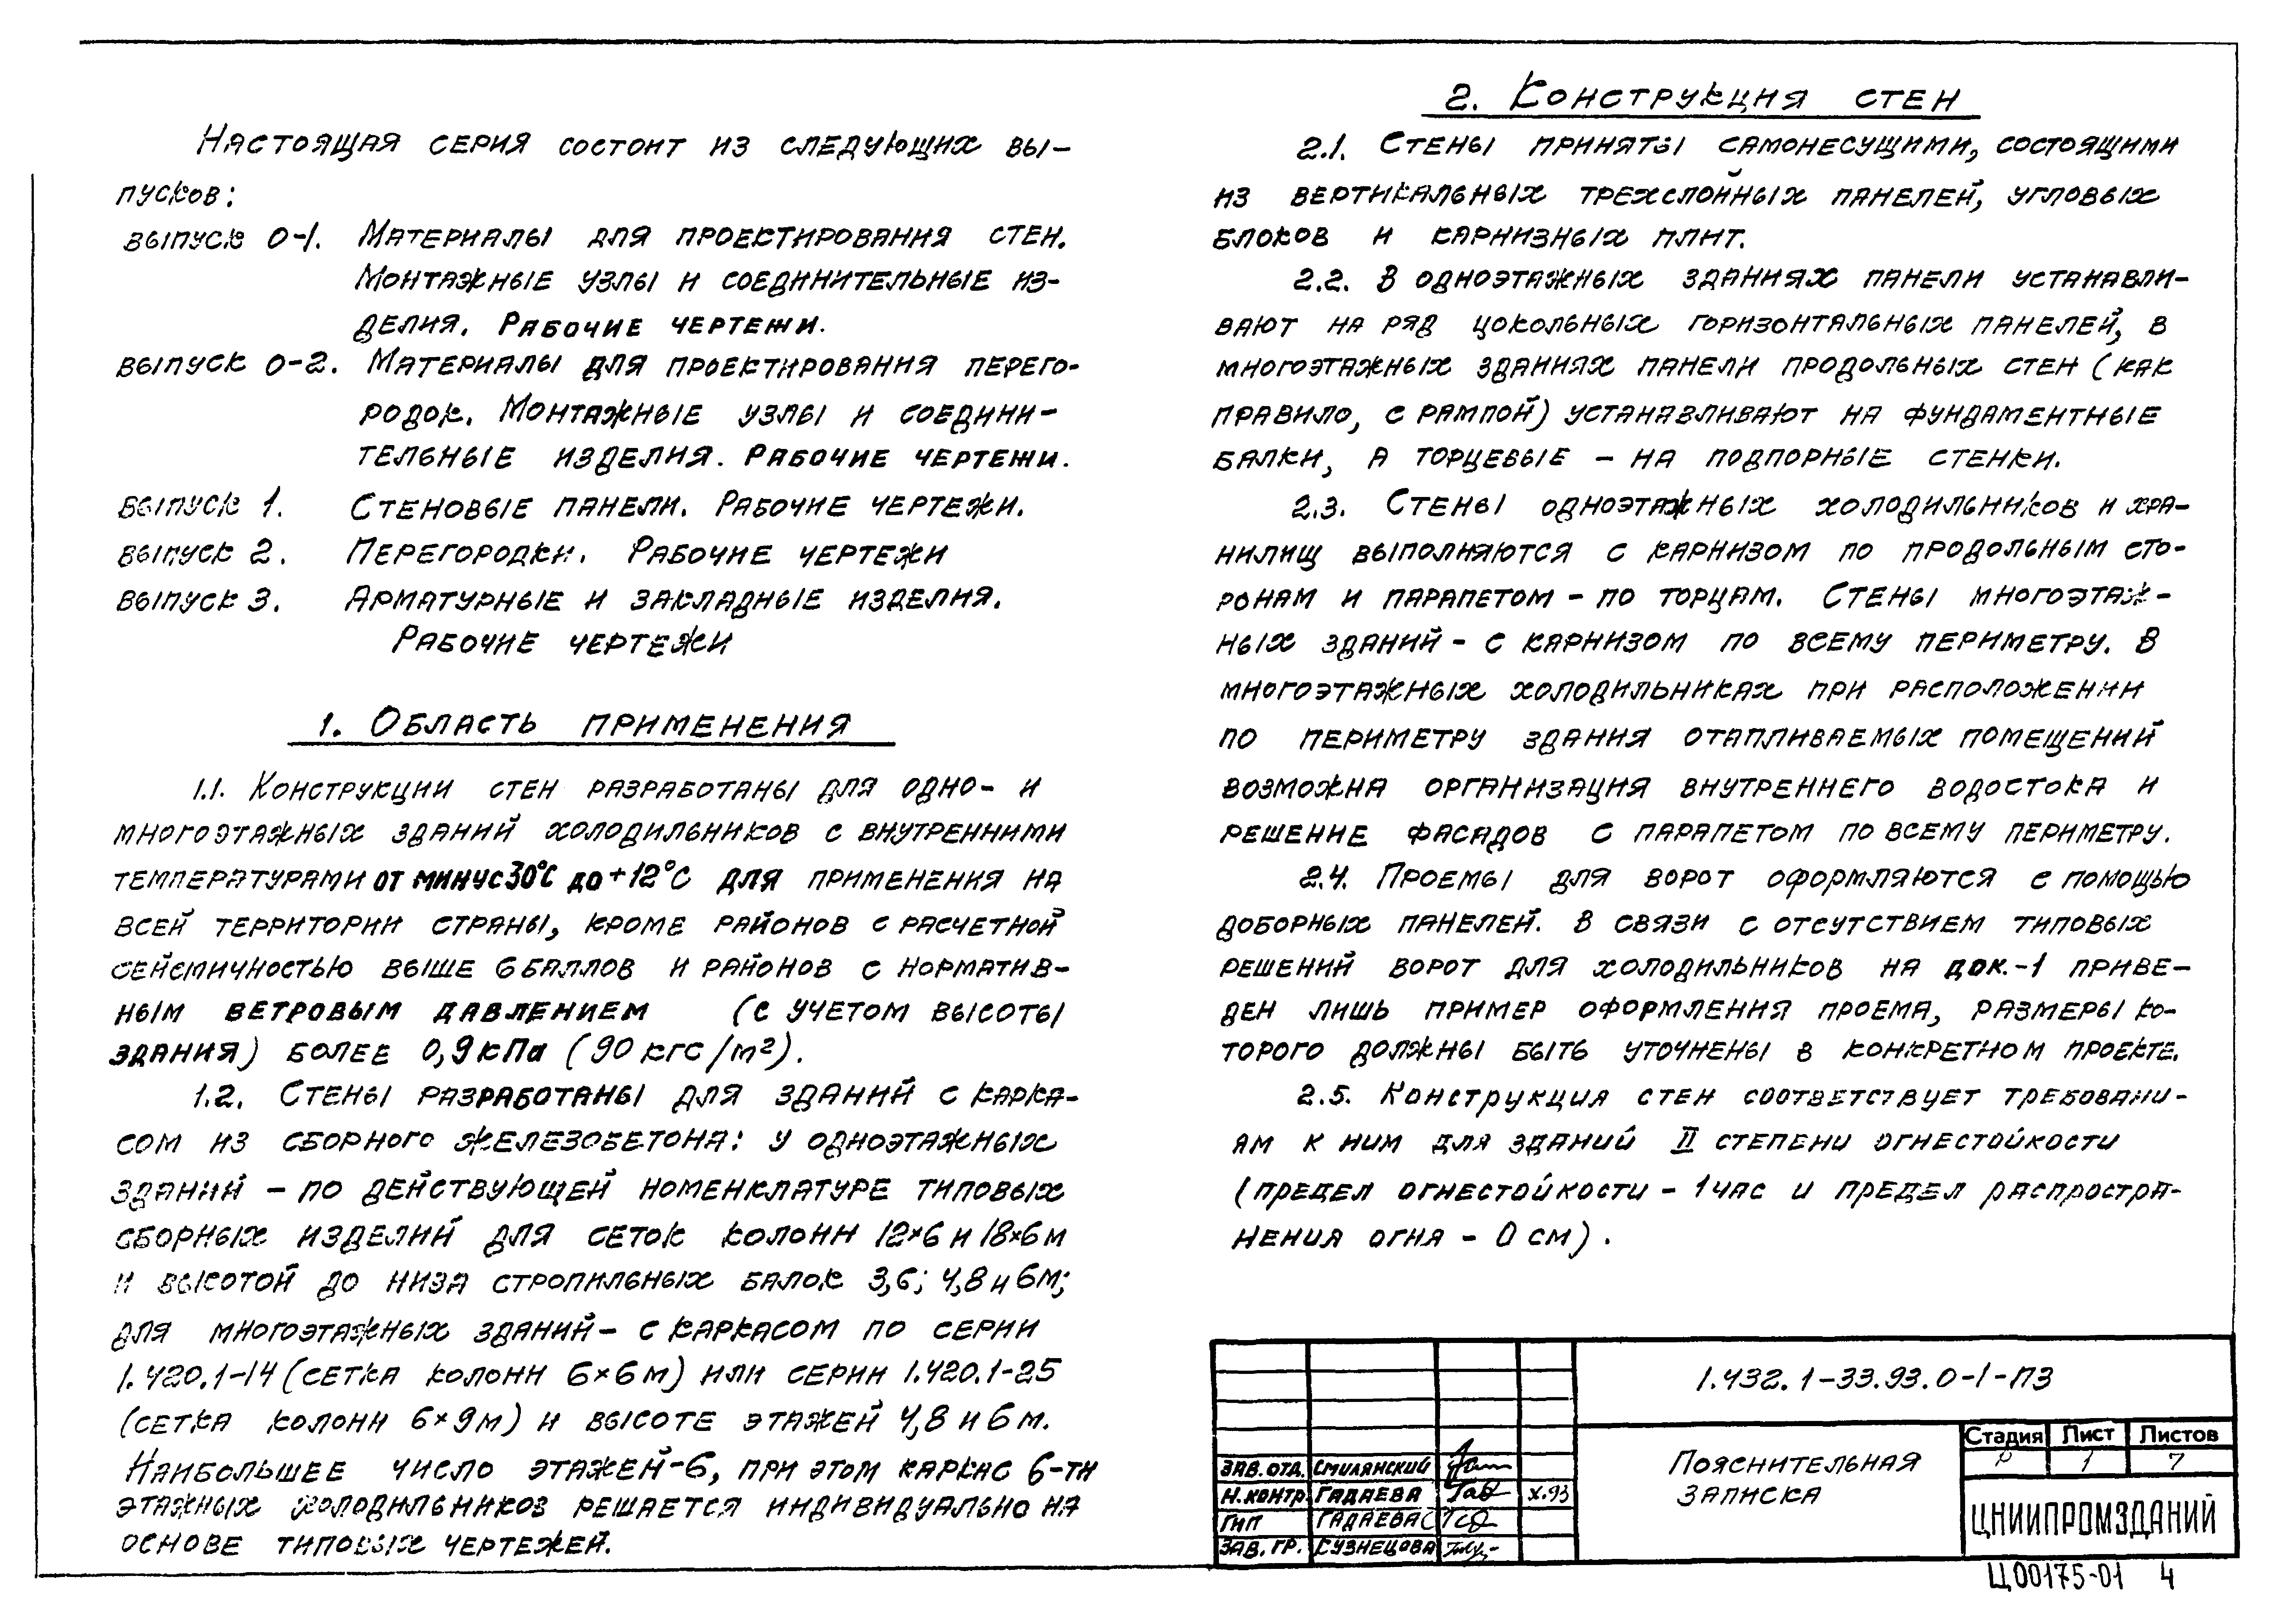 Настоящая серия состоит из следующих вы-
пусков:
выпуск 0-1. Материалы для проектирования стен.
Монтажные узлы и соединительные из-
делия. Рабочие чертежи.
выпуск 0-2. Материалы для проектирования перего-
родок. Монтажные узлы и соедини-
тельные изделия. Рабочие чертежи.
выпуск 1. Стеновые панели. Рабочие чертежи.
выпуск 2. Перегородки. Рабочие чертежи
выпуск 3. Арматурные и закладные изделия.
Рабочие чертежи
1. Область применения
1.1. Конструкции стен разработаны для одно- и
многоэтажных зданий холодильников с внутренними
температурами от минус 30°С до +12°С для применения на
всей территории страны, кроме районов с расчетной
сейсмичностью выше 6 баллов и районов с норматив-
ным ветровым давлением (с учетом высоты
здания) более 0,9 кПа (90 кгс/м²).
1.2. Стены разработаны для зданий с карка-
сом из сборного железобетона: у одноэтажных
зданий - по действующей номенклатуре типовых
сборных изделий для сеток колонн 12×6 и 18×6 м
и высотой до низа стропильных балок 3,6; 4,8 и 6м;
для многоэтажных зданий - с каркасом по серии
1.420.1-14 (сетка колонн 6×6 м) или серии 1.420.1-25
(сетка колонн 6×9 м) и высоте этажей 4,8 и 6 м.
Наибольшее число этажей-6, при этом каркас 6-ти
этажных холодильников решается индивидуально на
основе типовых чертежей.
2. Конструкция стен
2.1. Стены приняты самонесущими, состоящими
из вертикальных трехслойных панелей, угловых
блоков и карнизных плит.
2.2. В одноэтажных зданиях панели устанавли-
вают на ряд цокольных горизонтальных панелей, в
многоэтажных зданиях панели продольных стен (как
правило, с рампой) устанавливают на фундаментные
балки, а торцевые - на подпорные стенки.
2.3. Стены одноэтажных холодильников и хра-
нилищ выполняются с карнизом по продольным сто-
ронам и парапетом - по торцам. Стены многоэтаж-
ных зданий - с карнизом по всему периметру. В
многоэтажных холодильниках при расположении
по периметру здания отапливаемых помещений
возможна организация внутреннего водостока и
решение фасадов с парапетом по всему периметру.
2.4. Проемы для ворот оформляются с помощью
доборных панелей. В связи с отсутствием типовых
решений ворот для холодильников на док.-1 приве-
ден лишь пример оформления проема, размеры ко-
торого должны быть уточнены в конкретном проекте.
2.5. Конструкция стен соответствует требовани-
ям к ним для зданий II степени огнестойкости
(предел огнестойкости - 1 час и предел распростра-
нения огня - 0 см).
1.432.1-33.93.0-1-ПЗ
Пояснительная
записка
Стадия Лист Листов
Р 1 7
ЦНИИПРОМЗДАНИЙ
Зав. отд. Смилянский
Н.контр. Гадаева х.93
ГИП Гадаева
Зав. гр. Кузнецова
Ц00175-01 4